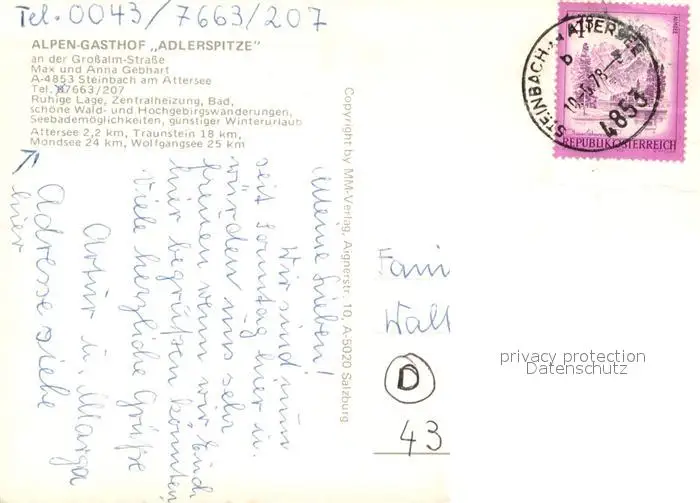 Tel. 0043/7663/207
ALPEN-GASTHOF „ADLERSPITZE"
an der Großalm-Straße
Max und Anna Gebhart
A-4853 Steinbach am Attersee
Tel. 07663/207
Ruhige Lage, Zentralheizung, Bad,
schöne Wald- und Hochgebirgswanderungen,
Seebademöglichkeiten, günstiger Winterurlaub
Attersee 2,2 km, Traunstein 18 km,
Mondsee 24 km, Wolfgangsee 25 km
Meine Lieben!
Wir sind nun
seit Sonntag hier u.
würden uns sehr
freuen wenn wir Euch
hier begrüßen könnten.
Viele herzliche Grüße
Artur u. Marga
Adresse siehe
hier
Copyright by MM-Verlag, Aignerstr. 10, A-5020 Salzburg
STEINBACH AM ATTERSEE
b
4853
REPUBLIK ÖSTERREICH
Fam
Walt
D
43
privacy protection
Datenschutz